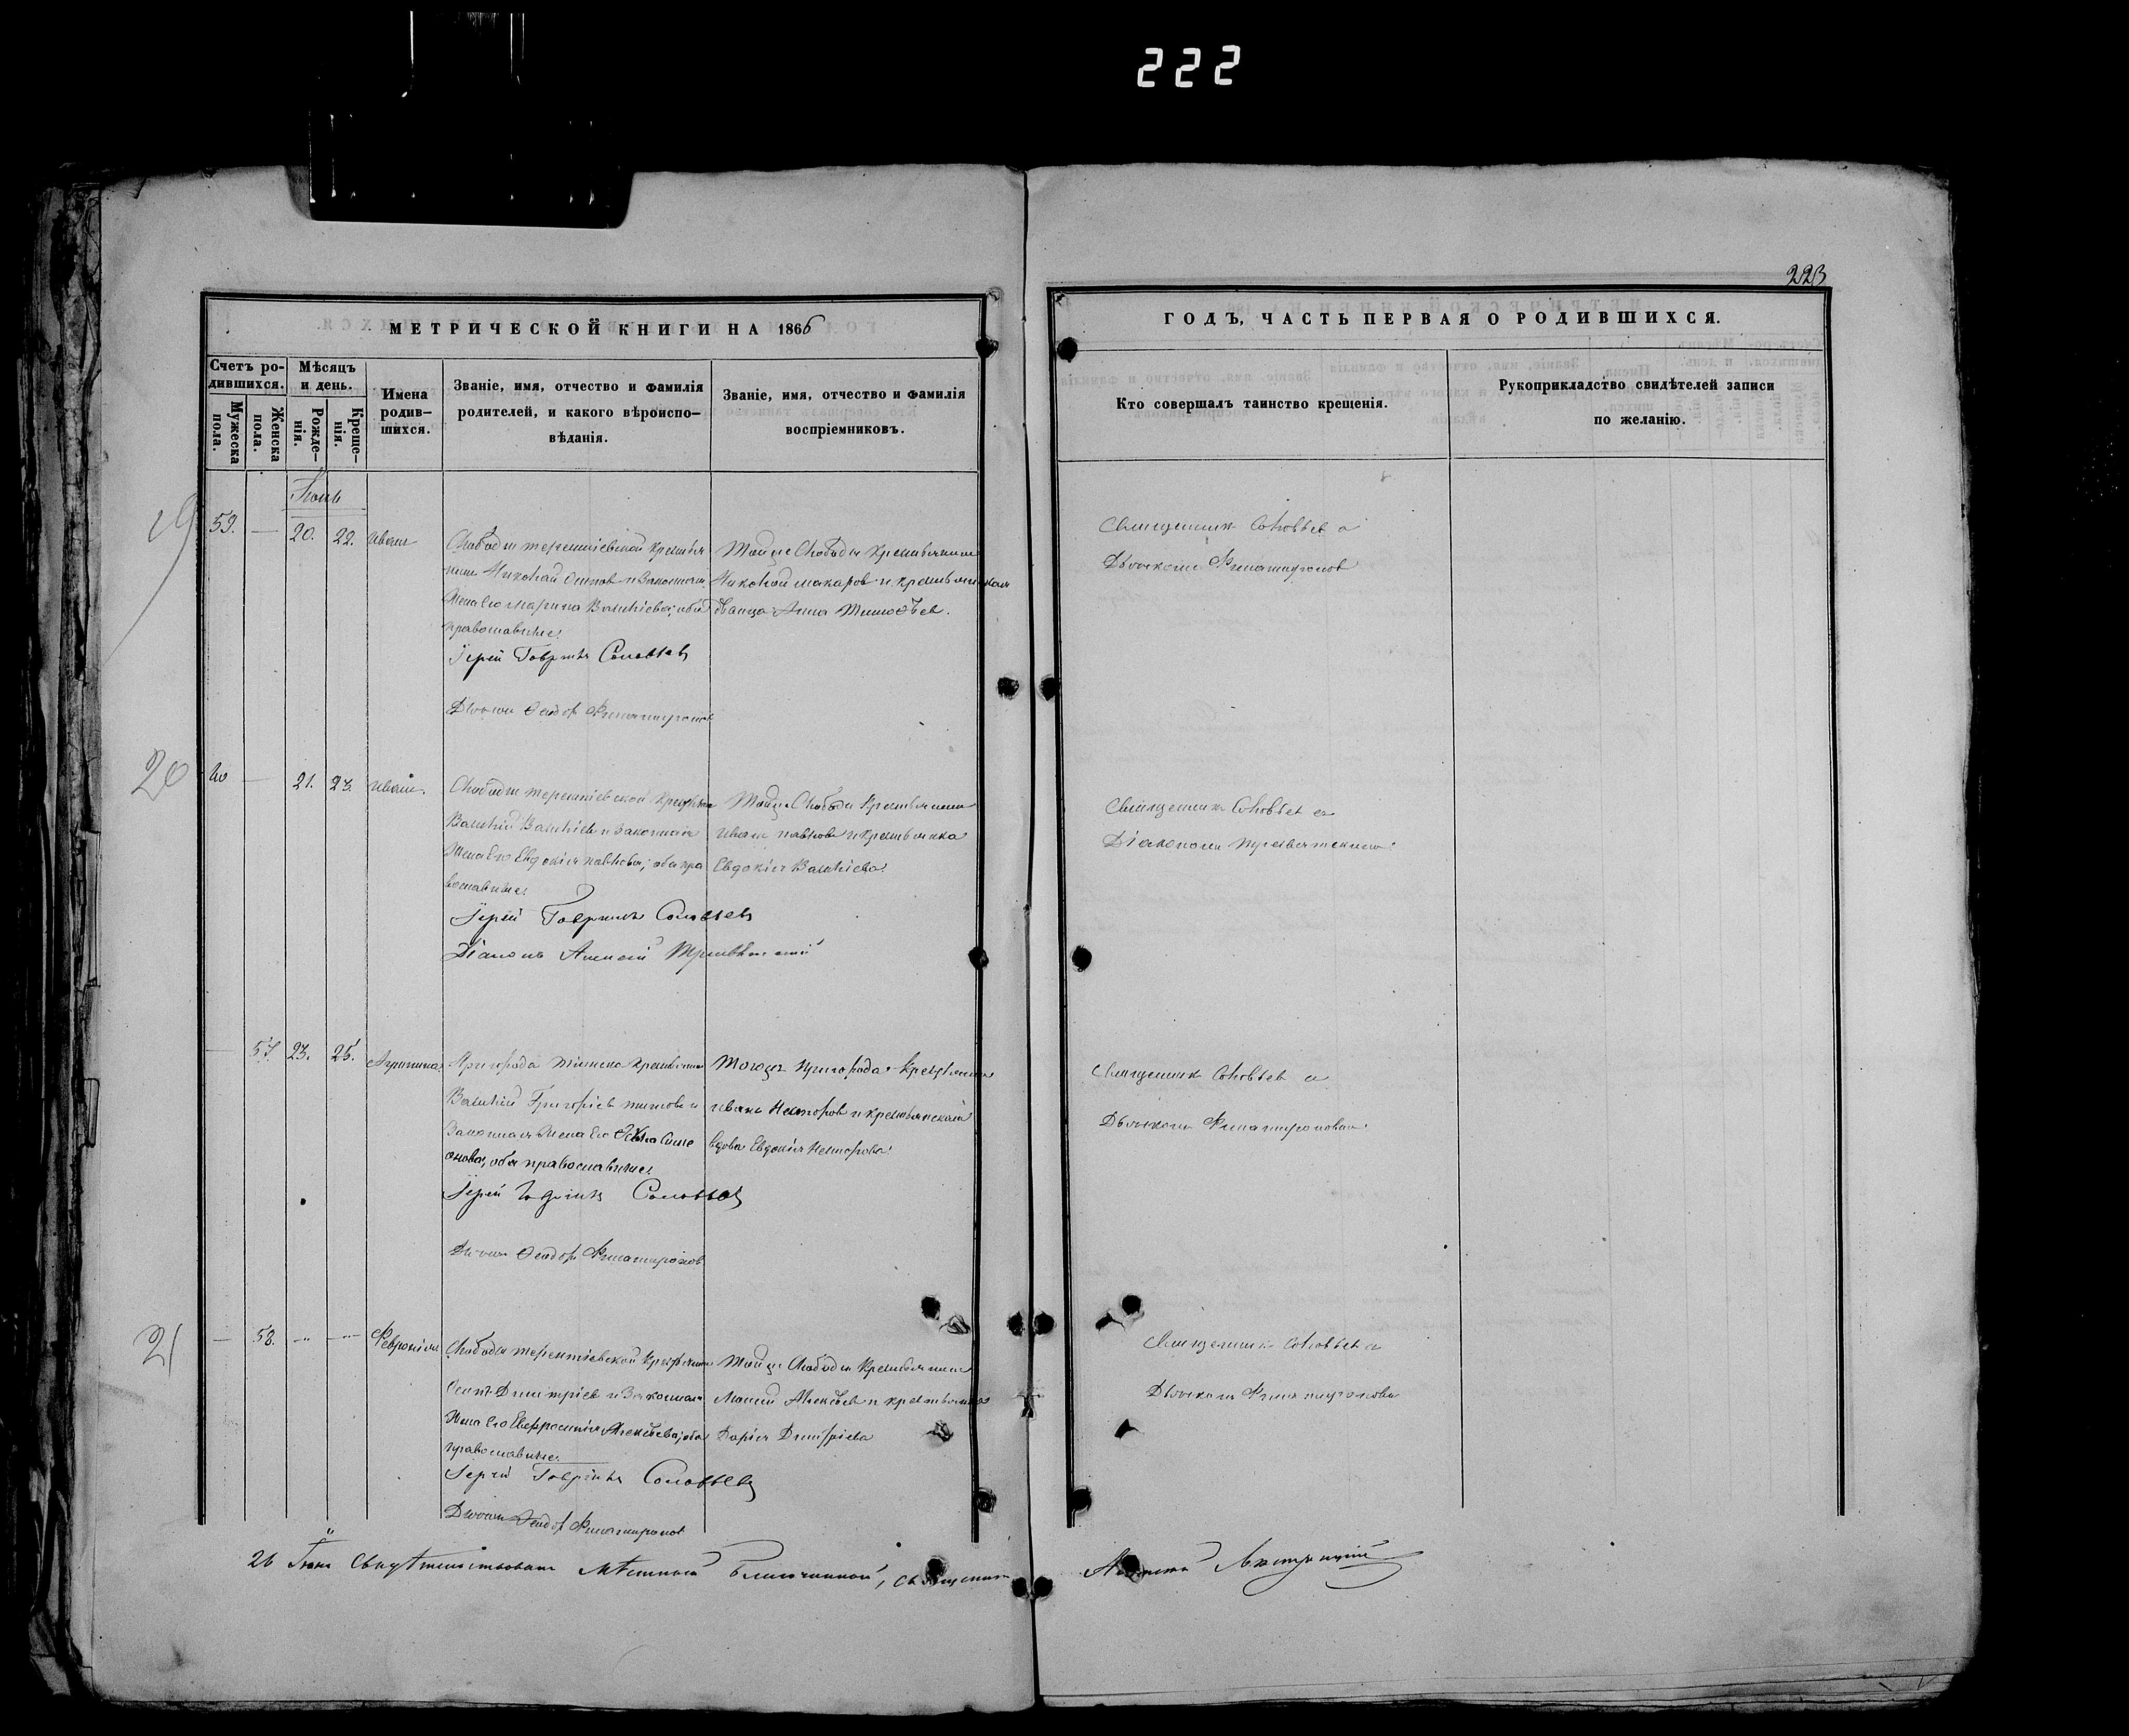 222
223
МЕТРИЧЕСКОЙ КНИГИ НА 1866
ГОДЪ, ЧАСТЬ ПЕРВАЯ О РОДИВШИХСЯ.
Счетъ ро-
дившихся.
Мужеска
пола.
Женска
пола.
Мѣсяцъ
и день.
Рожде-
нія.
Креще-
нія.
Имена
родив-
шихся.
Званіе, имя, отчество и фамилія
родителей, и какого вѣроиспо-
вѣданія.
Званіе, имя, отчество и фамилія
воспріемниковъ.
Кто совершалъ таинство крещенія.
Рукоприкладство свидѣтелей записи
по желанію.
19
59. — 20. 22. Иванъ
Слободы Терентіевской крестья
нинъ Николай Осиповъ и законная
жена его Марина Васильева, оба
православные.
Іерей Гавріилъ Соловьевъ
Феодоръ Филатроповъ
Тойже Слободы крестьянинъ
Николай Макаровъ и крестьянская
дѣвица Анна
Священникъ Соловьевъ с
20
60 — 21. 23. Иванъ.
Слободы Терентіевской крестьянинъ
Василій Васильевъ и законная
жена его Евдокія Павлова, оба пра
вославные.
Іерей Гавріилъ Соловьевъ
Діаконъ Алексей
Тойже Слободы крестьянинъ
Иванъ Павловъ и крестьянка
Евдокія Васильева.
Священникъ Соловьевъ съ
Діакономъ
— 57. 23. 25.
Пригорода крестьянинъ
Василій Григорьевъ Титовъ и
законная жена его Симе
онова, оба православные.
Іерей Гавріилъ Соловьевъ
Феодоръ
Тогоже пригорода крестьянинъ
Иванъ Несторовъ и крестьянская
вдова Евдокія Несторова.
Священникъ Соловьевъ съ
21
— 58. — " — " — Февронія
Слободы Терентіевской крестьянинъ
Осипъ Димитріевъ и законная
жена его Евфросинія Алексѣева, оба
православные.
Іерей Гавріилъ Соловьевъ
Феодоръ
Тойже Слободы крестьянинъ
Алексѣевъ и крестьянка
Дарія Димитріева
Священникъ Соловьевъ съ
26 Свидѣтельствовалъ Мѣстный Благочинный, Священникъ